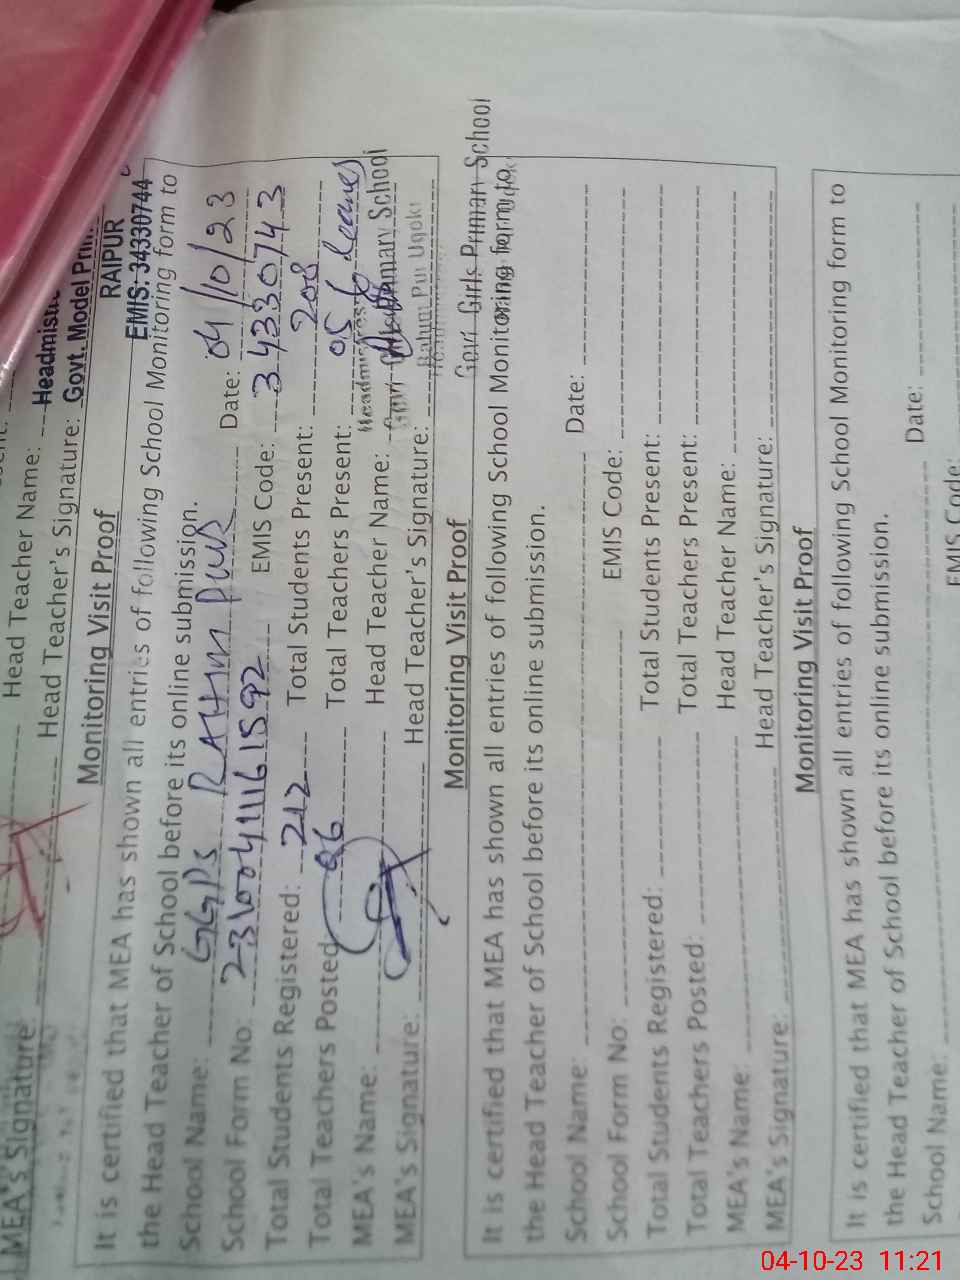 Head Teacher Name:
MEA's Signature: Head Teacher's Signature:
Govt. Model
RAIPUR
EMIS: 34330744
Monitoring Visit Proof
It is certified that MEA has shown all entries of following School Monitoring form to
the Head Teacher of School before its online submission.
School Name: GGPS RAHIM PUR Date: 04/10/23
School Form No: EMIS Code: 34330743
Total Students Registered: 212 Total Students Present: 208
Total Teachers Posted: 06 Total Teachers Present: 05
MEA's Name: Head Teacher Name:
MEA's Signature: Head Teacher's Signature:
Primary School
Monitoring Visit Proof
Govt Girls Primary School
It is certified that MEA has shown all entries of following School Monitoring form to
the Head Teacher of School before its online submission.
School Name: Date:
School Form No: EMIS Code:
Total Students Registered: Total Students Present:
Total Teachers Posted: Total Teachers Present:
MEA's Name: Head Teacher Name:
MEA's Signature: Head Teacher's Signature:
Monitoring Visit Proof
It is certified that MEA has shown all entries of following School Monitoring form to
the Head Teacher of School before its online submission.
School Name: Date:
EMIS Code:
04-10-23 11:21